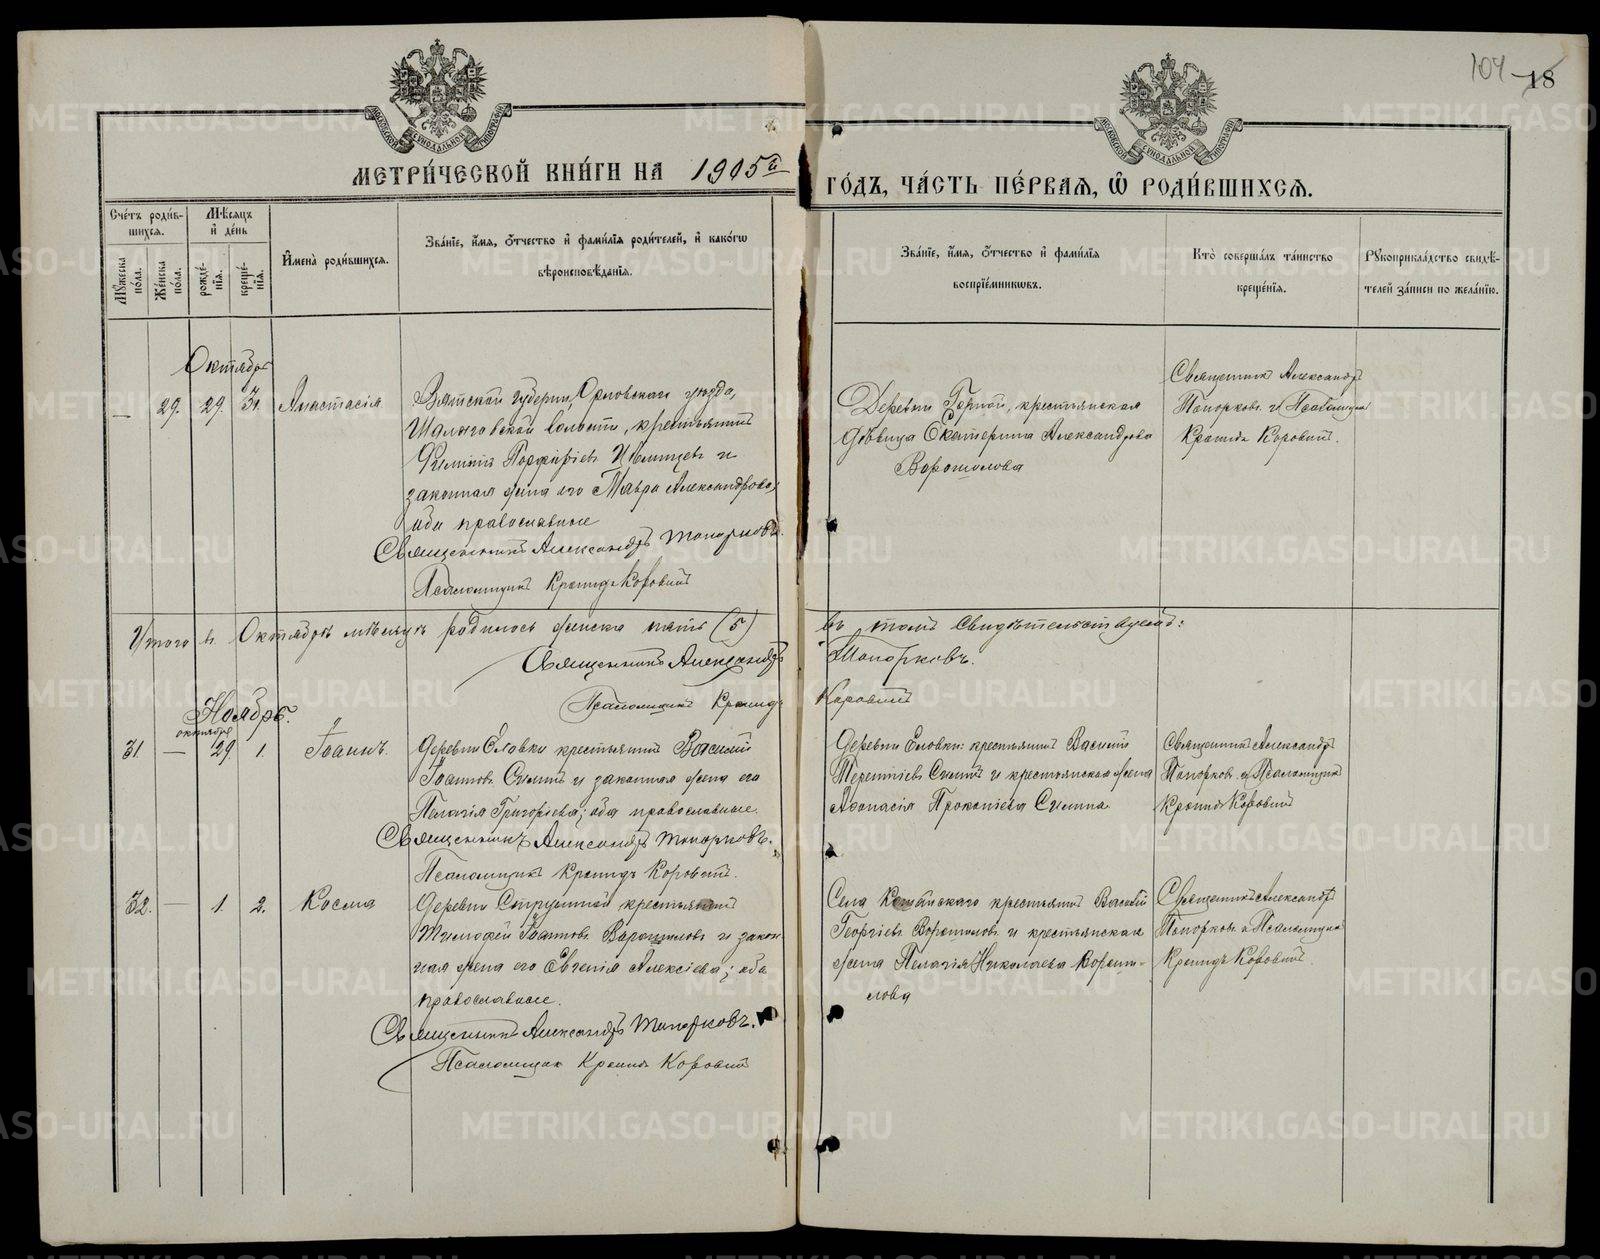 104 18
МЕТРИ́ЧЕСКОЙ КНИ́ГИ НА 1905й ГО́ДЪ, ЧА́СТЬ ПЕ́РВАЯ, Ѽ РОДИ́ВШИХСЯ.
Сче́тъ роди́вшихся.
Мѣ́сяцъ и де́нь
Мꙋ́жеска по́ла.
Же́нска по́ла.
рожде́нїя.
креще́нїя.
И҆мена̀ роди́вшихся.
Зва́нїе, и҆́мя, ѻ҆́тчество и҆ фами́лїя роди́телей, и҆ како́гѡ
вѣроисповѣ́данїя.
Зва́нїе, и҆́мя, ѻ҆́тчество и҆ фами́лїя
воспрїе́мникѡвъ.
Кто̀ соверша́лъ та́инство
креще́нїя.
Рꙋкоприкла́дство свидѣ́-
телей за́писи по жела́нїю.
Октябрь
— 29. 29. 31. Анастасія
Вятской губерніи, Орловскаго уѣзда,
волости, крестьянинъ
Порфиріевъ и
законная жена его Мавра Александрова,
оба православные
Священникъ Александръ Топорковъ.
Псаломщикъ Кронидъ Коровинъ
Деревни Горной, крестьянская
дѣвица Екатерина Александрова
Ворошилова
Священникъ Александръ
Топорковъ и Псаломщикъ
Кронидъ Коровинъ.
Итого въ Октябрѣ мѣсяцѣ родилось женска пять (5) въ томъ свидѣтельствуемъ:
Священникъ Александръ Топорковъ.
Псаломщикъ Кронидъ Коровинъ
Ноябрь.
октября
31. — 29. 1. Іоаннъ.
Деревни Еловки крестьянинъ Василій
Іоанновъ Силинъ и законная жена его
Пелагія Григоріева; оба православные.
Священникъ Александръ Топорковъ.
Псаломщикъ Кронидъ Коровинъ.
Деревни Еловки: крестьянинъ Василій
Терентіевъ Силинъ и крестьянская жена
Афанасія Прокопіева Силина.
Священникъ Александръ
Топорковъ и Псаломщикъ
Кронидъ Коровинъ
32. — 1. 2. Косма
Деревни крестьянинъ
Тимофей Іоанновъ Ворошиловъ и закон
ная жена его Евгенія Алексіева; оба
православные.
Священникъ Александръ Топорковъ.
Псаломщикъ Кронидъ Коровинъ
Села крестьянинъ Василій
Георгіевъ Ворошиловъ и крестьянская
жена Пелагія Николаева Вороши-
лова
Священникъ Александръ
Топорковъ и Псаломщикъ
Кронидъ Коровинъ.
METRIKI.GASO-URAL.RU